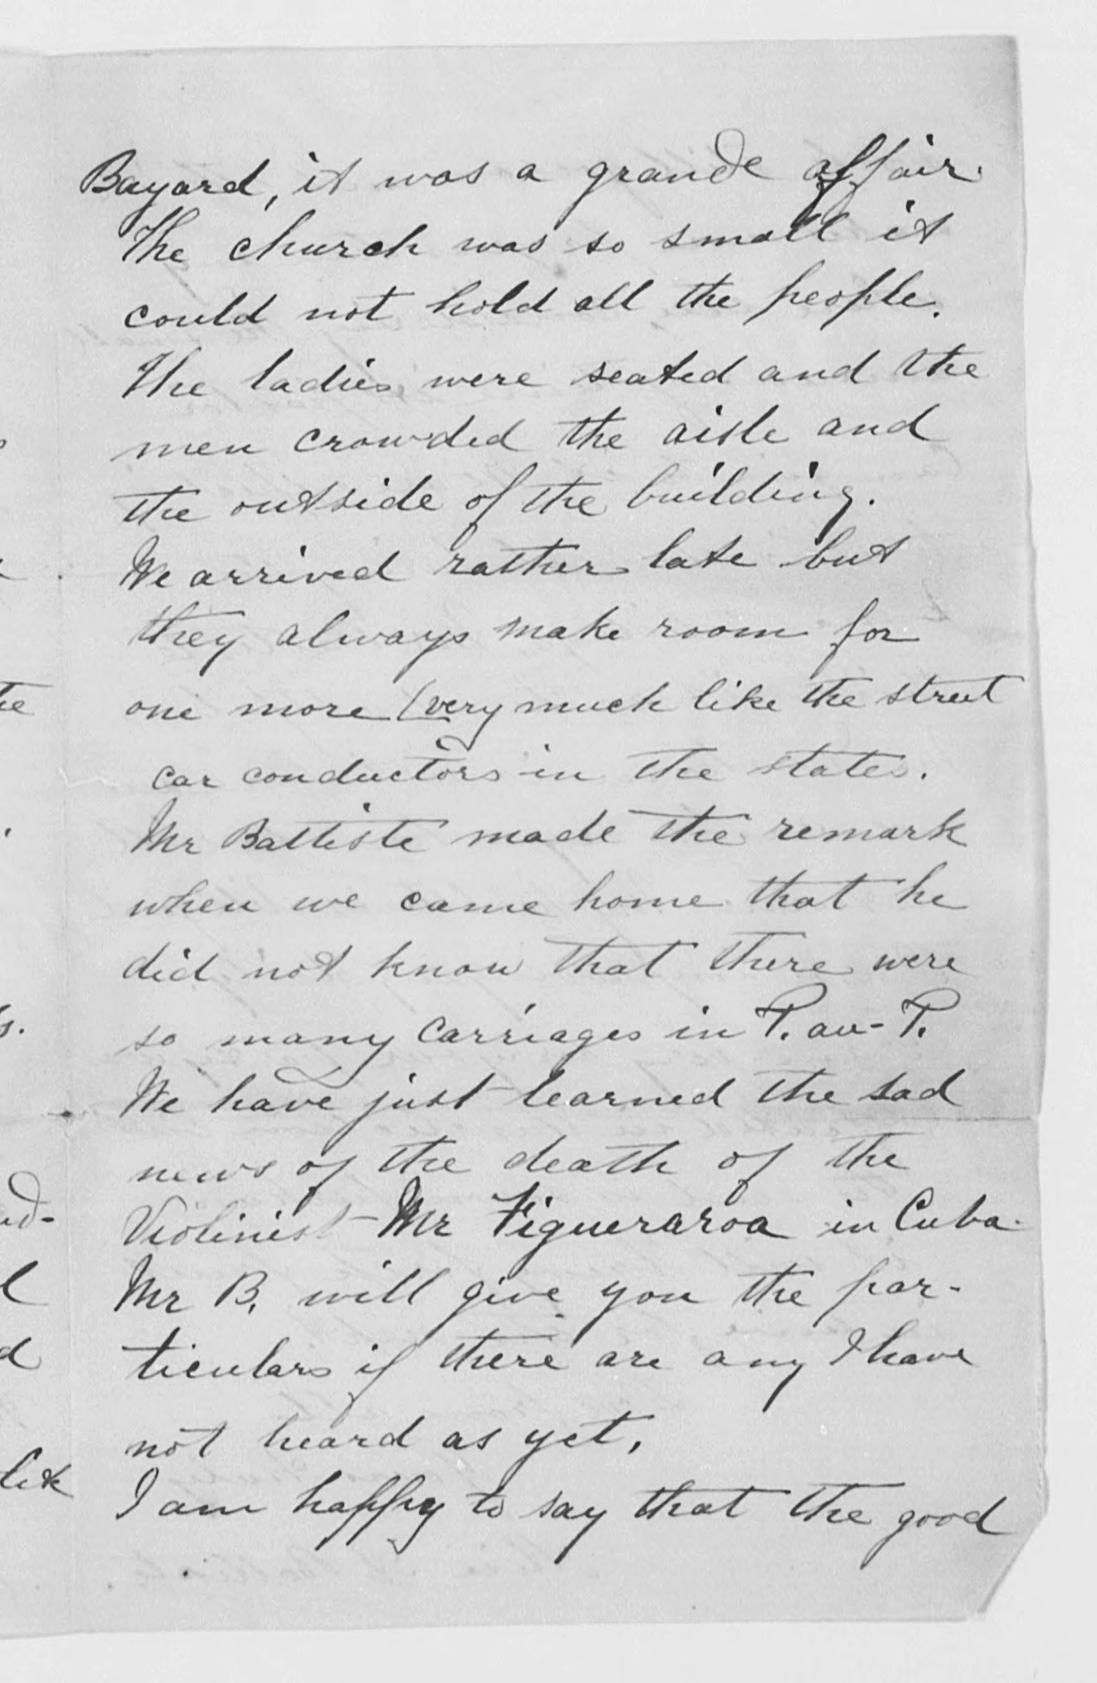 Bayard, it was a grande affair.
The church was so small it
could not hold all the people.
The ladies were seated and the
men crowded the aisle and
the outside of the building.
We arrived rather late but
they always make room for
one more (very much like the street
car conductors in the states.
Mr Battiste made the remark
when we came home that he
did not know that there were
so many carriages in P. au- P.
We have just learned the sad
news of the death of the
Violinist - Mr Figueraroa in Cuba.
Mr B. will give you the par-
ticulars if there are any I have
not heard as yet.
I am happy to say that the good